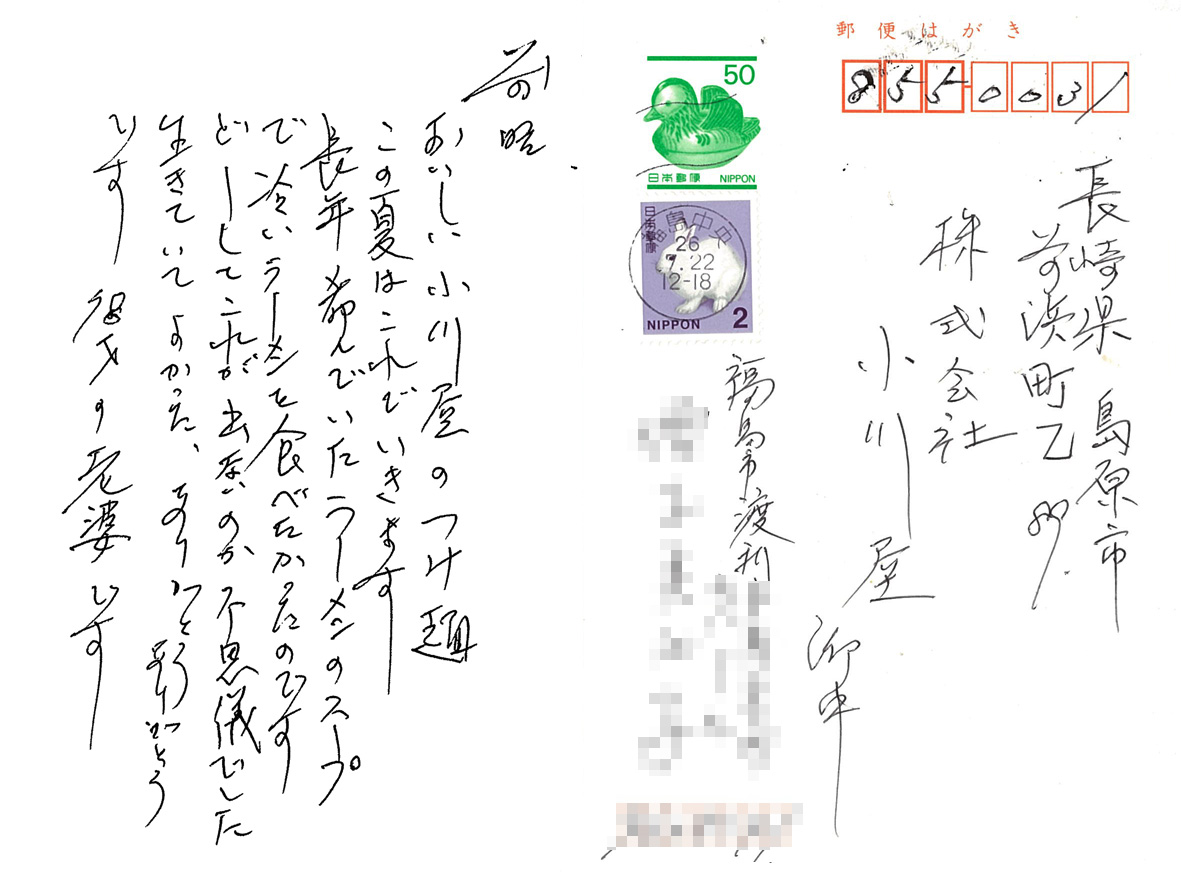 郵便はがき
855-0031
長崎県 島原市
前浜町乙 89.
株式会社
小川屋 御中
50
日本郵便 NIPPON
日本郵便
島中央
26
7.22
12-18
NIPPON 2
福島市渡利
前略
おいしい小川屋のつけ麺
この夏はこれでいきます
長年希んでいたラーメンのスープ
で冷いラーメンを食べたかったのです
どーしてこれが出ないのか不思儀でした
生きていてよかった、ありがとうありがとう
です 才の老婆です